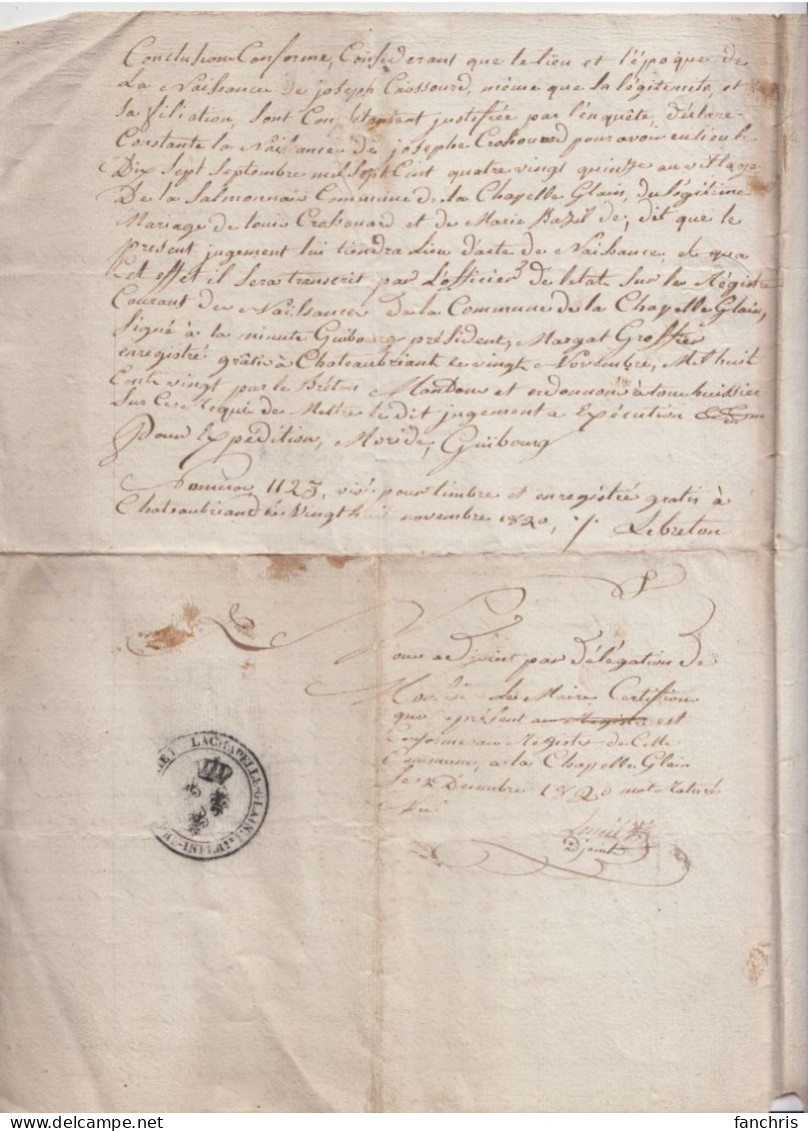 Conclusion Conforme, Considerant que le lieu et l'époque de
La Naissance de joseph Crossourd, même que la légitimité, et
sa filiation, sont justifiée par l'enquête, déclare
Constante la Naissance de josephe Crossouard pour avoir eu lieu le
Dix sept septembre mil sept Cent quatre vingt quinze au village
De la Salmonnais Commune de la Chapelle Glain, du légitime
Mariage de louis Crossouard et de Marie Bazil de; dit que le
présent jugement lui tiendra Lieu d'acte de Naissance, et qua
Cet effet il sera transcrit par l'officier de letat sur le Régistre
Courant de Naissance De la Commune de la Chapelle Glain,
Signé à la minute Guibourg président, Margat Greffier
enregistré gratis à Chateaubriant le vingt Novembre, Mil huit
Cent vingt par le Bréton Mandons et ordonnons à tous huissier
Sur Ce Requis de Mettre le dit jugement a Exécution
Pour Expédition, Moride, Guibourg
Numéro 1123, visé pour timbre et enregistré gratis à
Chateaubriand le Vingt novembre 1820, Lebreton
Nous adjoint par délégation de
Le Maire Certifion
que présent au Registre est
Conforme au Registre de Cette
Commune, a la Chapelle Glain
le Décembre 1820 mot raturé
Nul
adjoint
LACHAPELLE-GLAIN
INFERI
fanchris